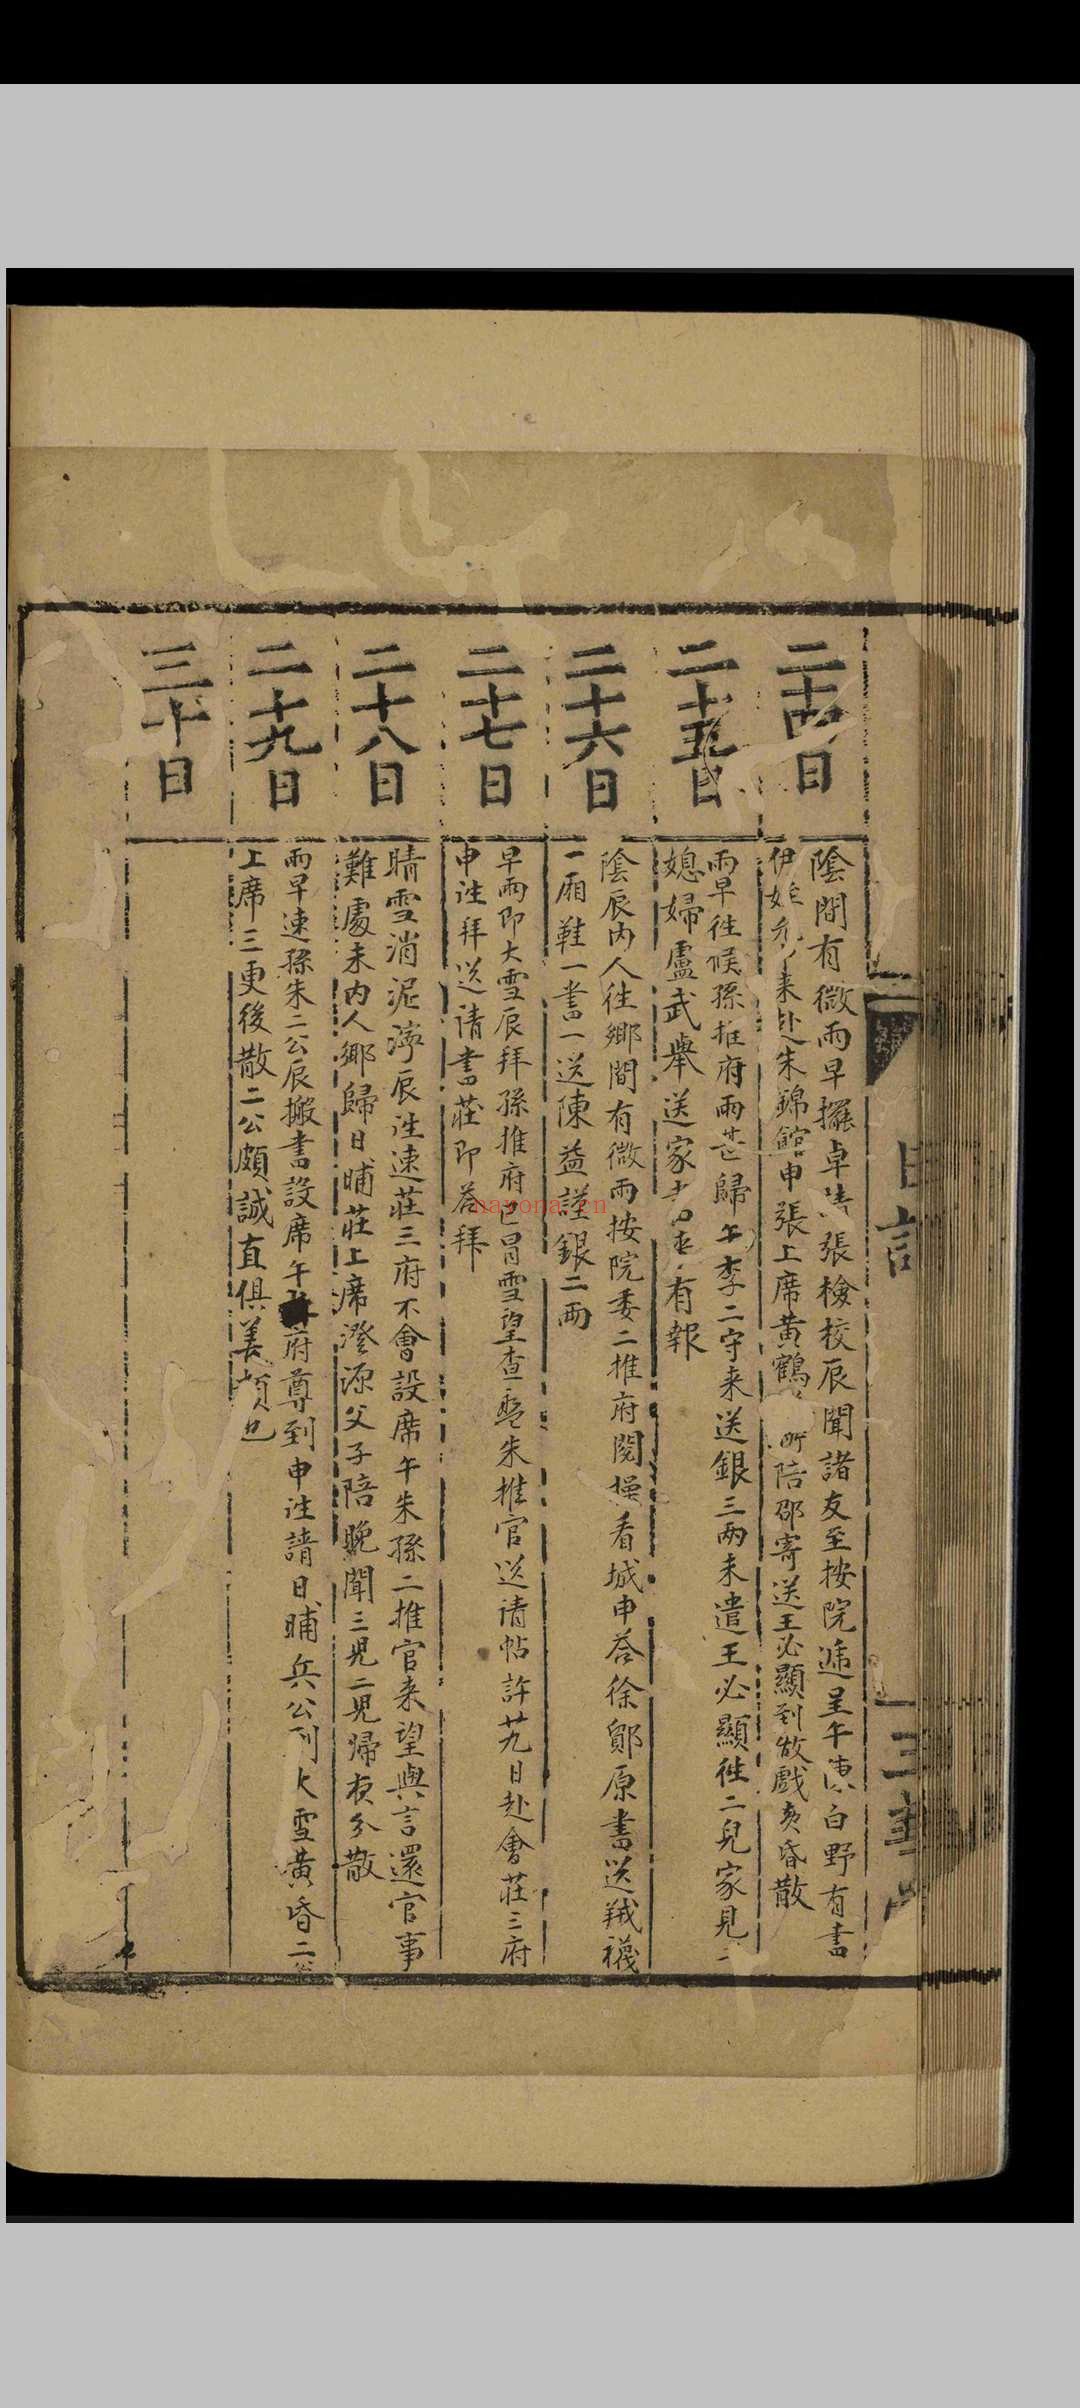 二十四日
陰間有微雨早攞卓 張檢校辰聞諸友至按院遞呈午陳白野有書
伊姪 来赴朱錦館申張上席黄鶴 陪邵寄送王必顯到做戲亥昏散
二十五日
雨早往候孫推府雨芷歸午李二守来送銀三两未遣王必顯往二兒家見
媳婦盧武舉送家 有報
二十六日
陰辰内人往鄉間有微雨按院委二推府閱操看城申荅徐鄮原書送羢襪
一廂鞋一書一送陳益謹銀二两
二十七日
早雨即大雪辰拜孫推府巳冒雪望查盘朱推官送请帖許廿九日赴會莊三府
申往拜送请書莊即荅拜
二十八日
晴雪消泥濘辰往速莊三府不會設席午朱孫二推官来望與言還官事
難處未内人鄉歸日晡莊上席澄源父子陪晚聞三児二児歸夜分散
二十九日
雨早速孫朱二公辰搬書設席午 府尊到申往請日晡兵公到大雪黄昏二
上席三更後散二公頗誠直俱美 也
三十日
nayona.cn